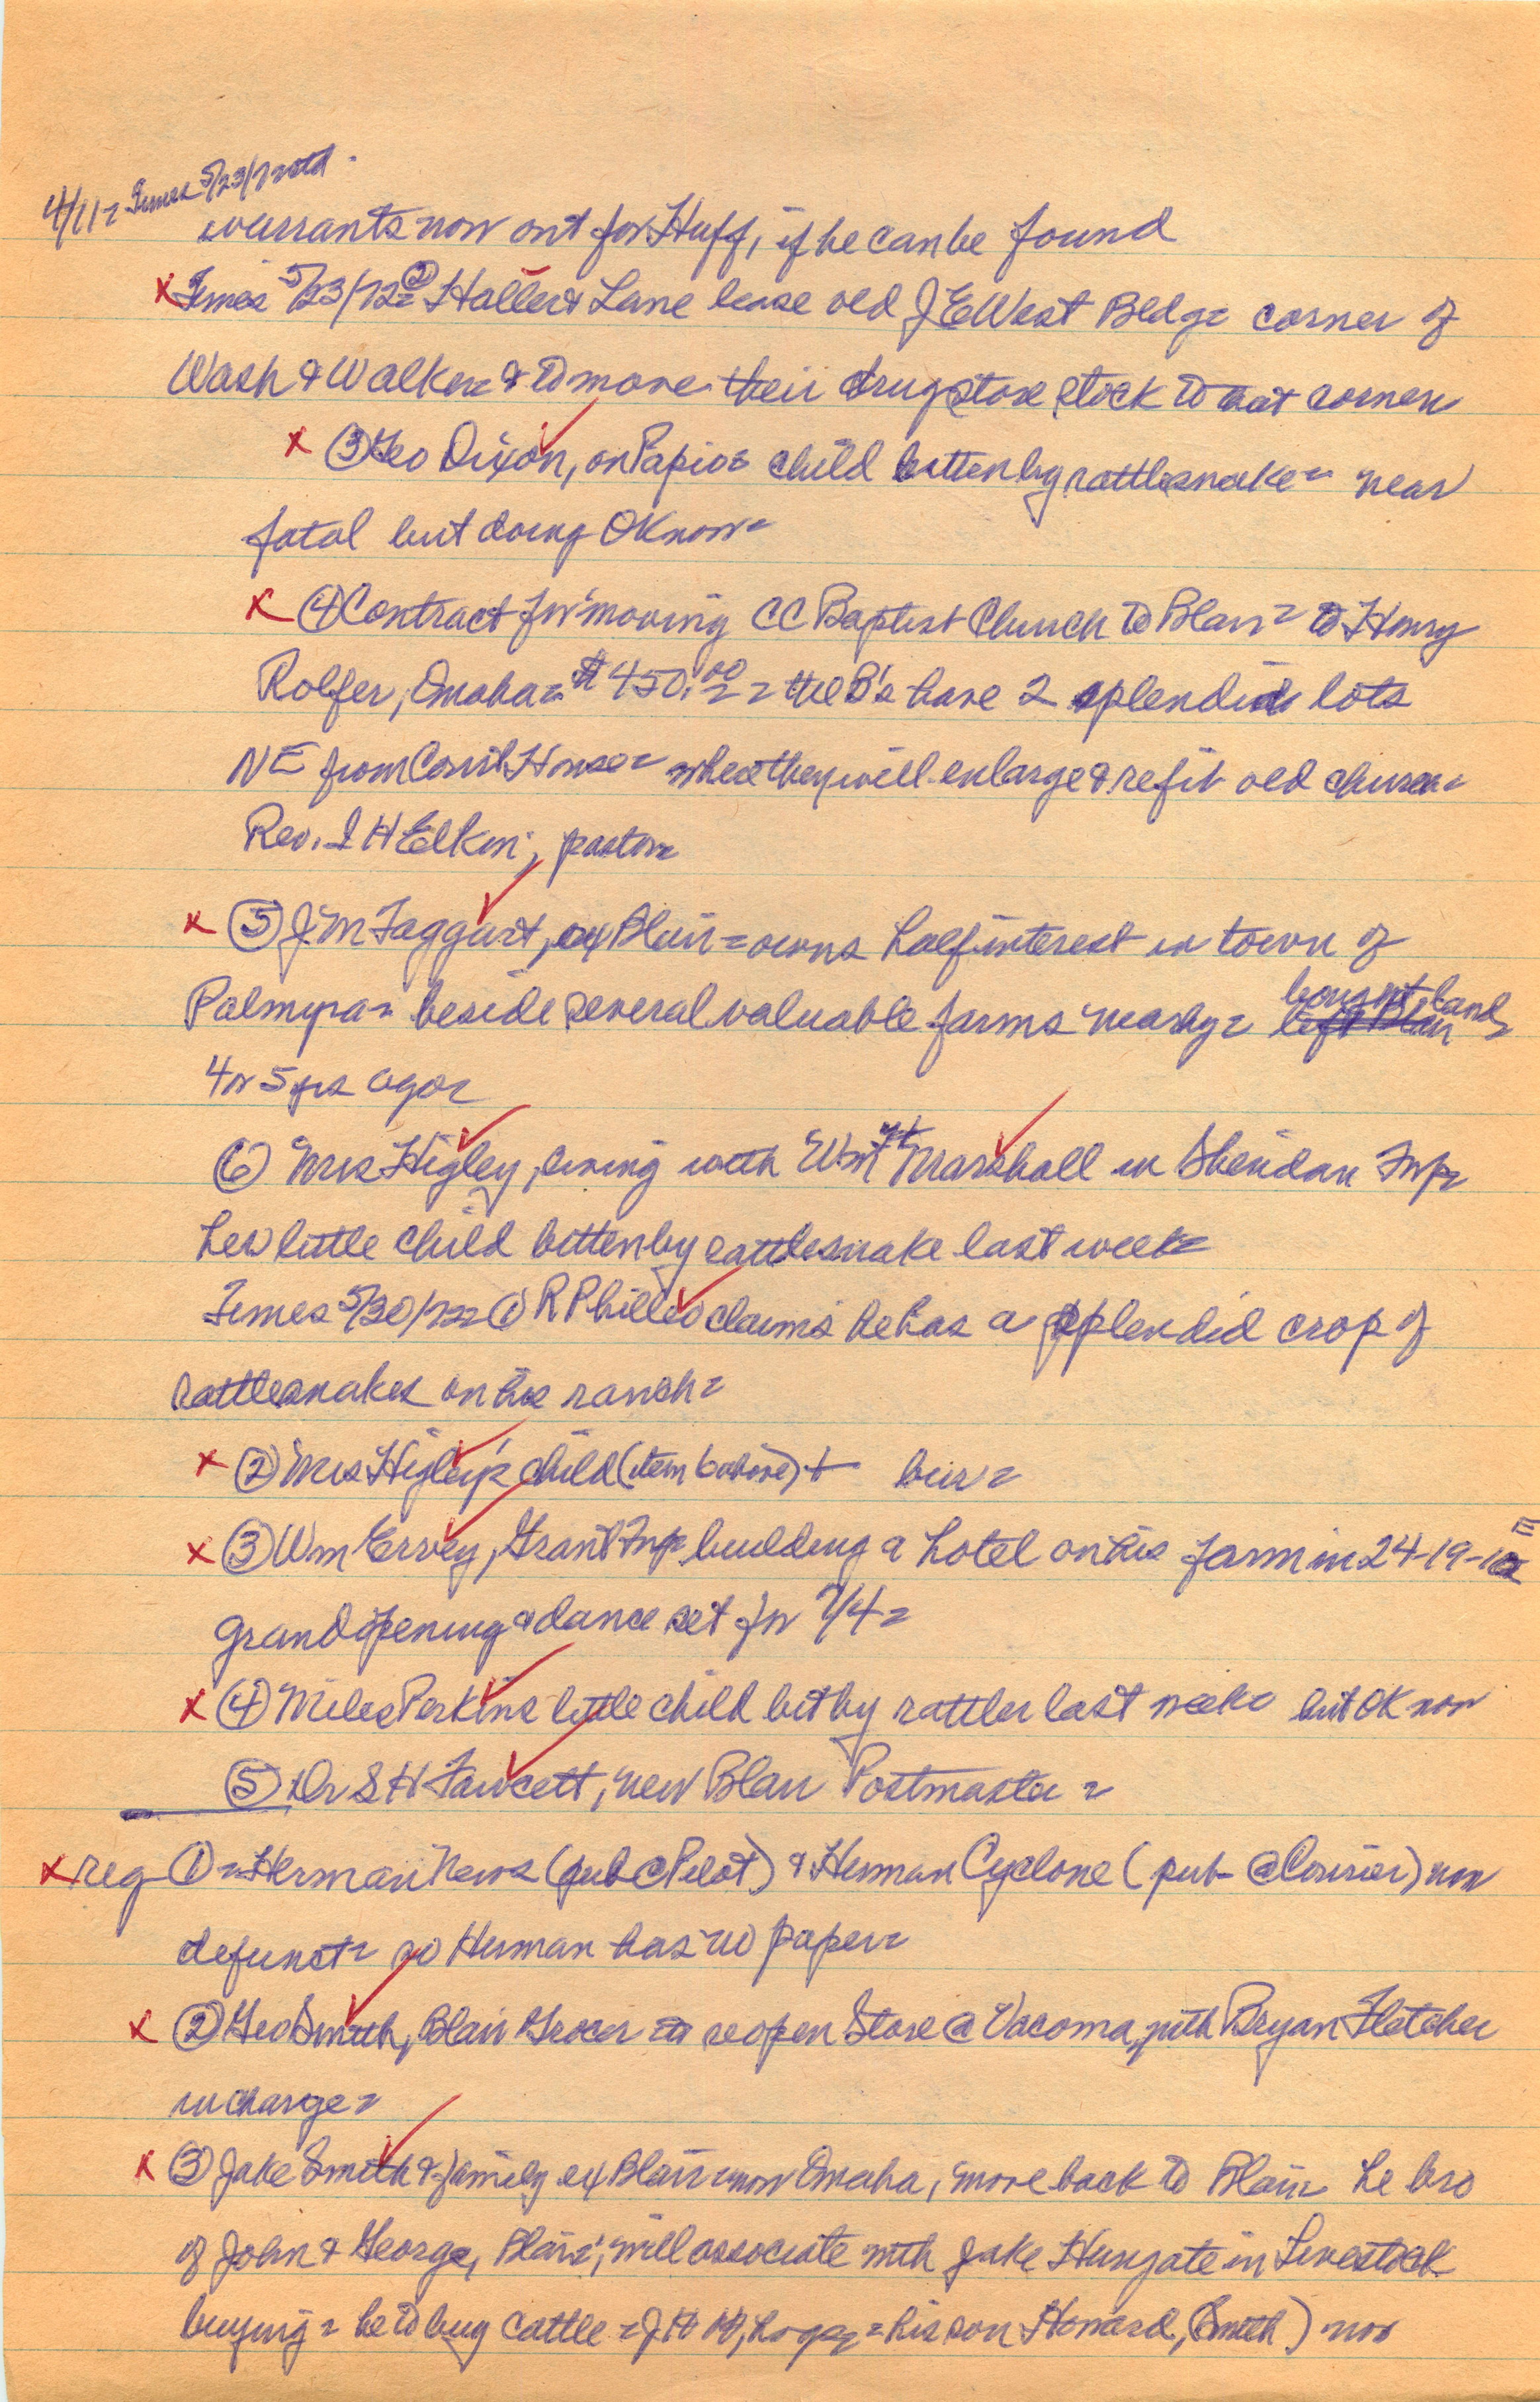 4/11= Times 5/23/72 ctd.
warrants now out for Huff, if he can be found
x Times 5/23/72= ② Haller & Lane lease old J E West Bldg= corner of
Wash & Walker= & to move their drugstore stock to that corner
x ③ Geo Dixon, on Papio= child bitten by rattlesnake= near
fatal but doing OK now=
x ④ Contract for moving CC Baptist Church to Blair= to Henry
Rolfer, Omaha= $450.00= the B's have 2 splendid lots
NE from Court House= where they will enlarge & refit old church=
Rev. I H Elkin, pastor=
x ⑤ J M Taggart, ex Blair= owns half interest in town of
Palmyra= beside several valuable farms nearby= left Blair bought land
4 or 5 yrs ago=
⑥ Mrs Higley, living with Wm Marshall in Sheridan Twp=
her little child bitten by rattlesnake last week=
Times 5/30/72= ① R Philleo claims he has a splendid crop of
rattlesnakes on his ranch=
x ② Mrs Higley's child (item 6 above) + bur=
x ③ Wm Ervey, Grant Twp= building a hotel on his farm in 24-19-10E
grand opening & dance set for 7/4=
x ④ Miles Perkins little child bit by rattler last week= but OK now
⑤ Dr S H Fawcett, new Blair Postmaster=
x reg ①= Herman News (pub @ Pilot) & Herman Cyclone (pub @ Courier) now
defunct= so Herman has no paper=
x ② Geo Smith, Blair Grocer to reopen Store @ Vacoma, with Bryan Fletcher
in charge=
x ③ Jake Smith & family ex Blair= now Omaha, move back to Blair he bro
of John & George, Blair; will associate with Jake Hungate in Livestock
buying= he to buy cattle= J H, hogs= his son Howard, (Smith) now